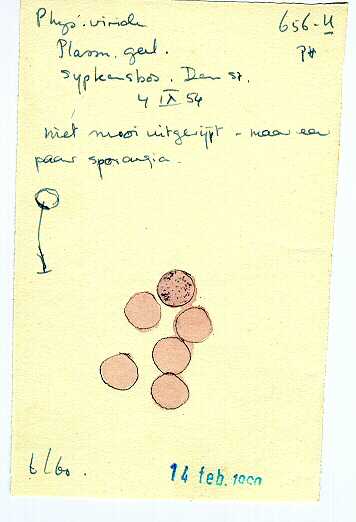 Phys. viride 656-U
Plasm. geel. P#
Sypkensbos. Den
4 IX 54
niet mooi uitgerijpt - maar een
paar sporangia.
t/60.
14 feb. 1960